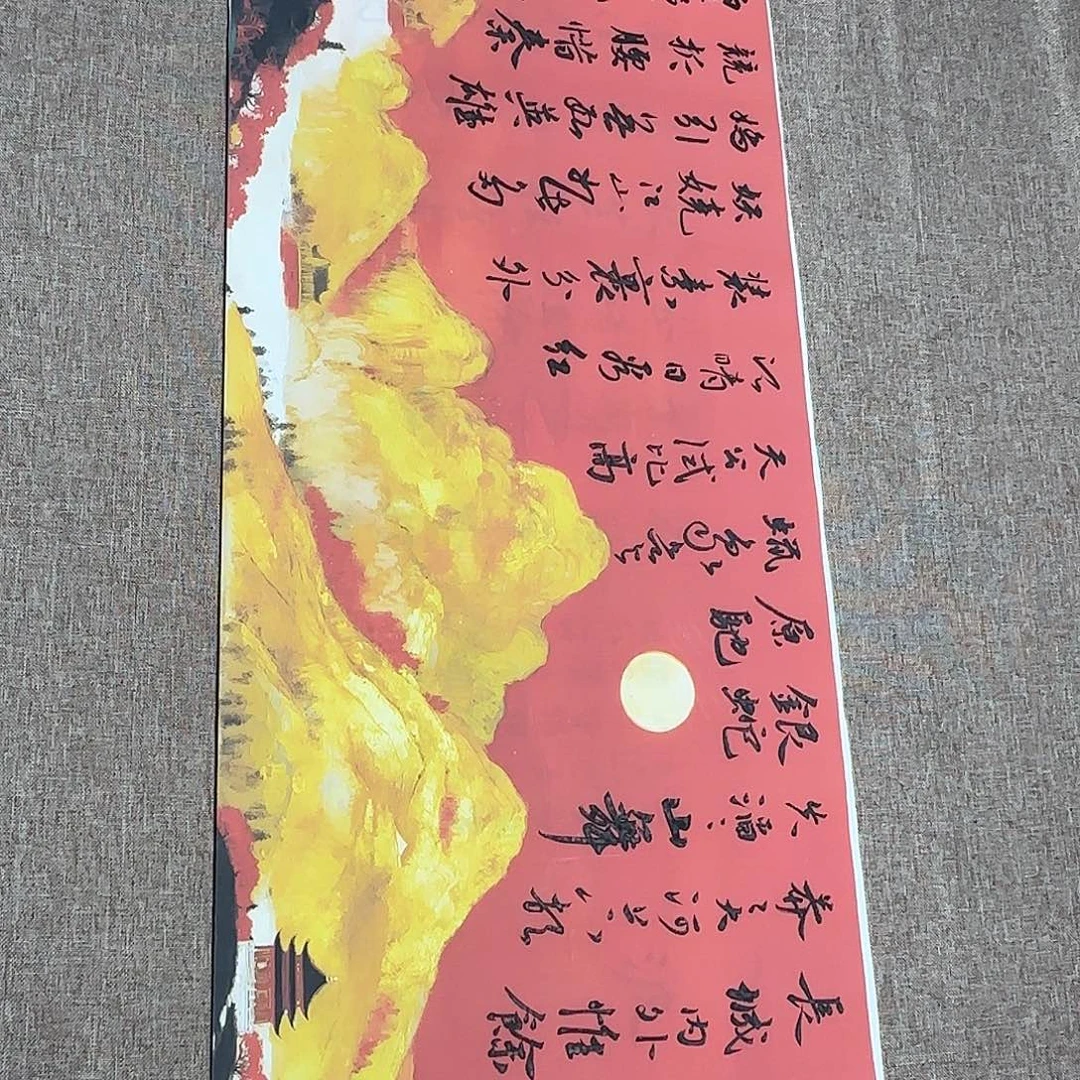 長城内外惟餘
莽々大河上下頓
失滔々山舞
銀蛇
原馳
蠟象欲與
天公試比高
須晴日看紅
裝素裹分外
妖嬈江山如此多
嬌引無數英雄
競折腰惜秦